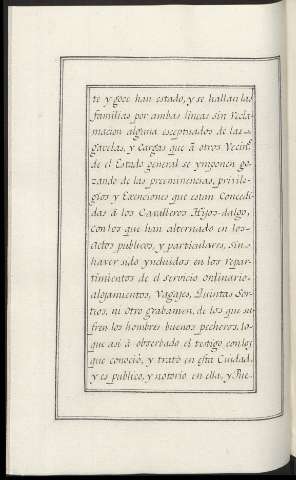 te y goce han estado, y se hallan las
familias por ambas lineas sin recla-
macion alguna exceptuados de las
gavelas, y Cargas que â otros Vecin.s
de el Estado general se ymponen go-
zando de las preeminencias, privile-
gios y Exenciones que estan Concedi-
das â los Cavalleros Hijos-dalgo,
con los que han alternado en los
Actos publicos, y particulares, Sin
haver sido yncluidos en los repar-
timientos de el servicio ordinario
alojamientos, Vagajes, Quintas Sor-
teos, ni otro grabamen, de los que su-
fren los hombres buenos pecheros, lo
que asi â observado el testigo con los
que conociò, y tratò en esta Ciudad,
y es publico, y notorio en ella, y Pue-